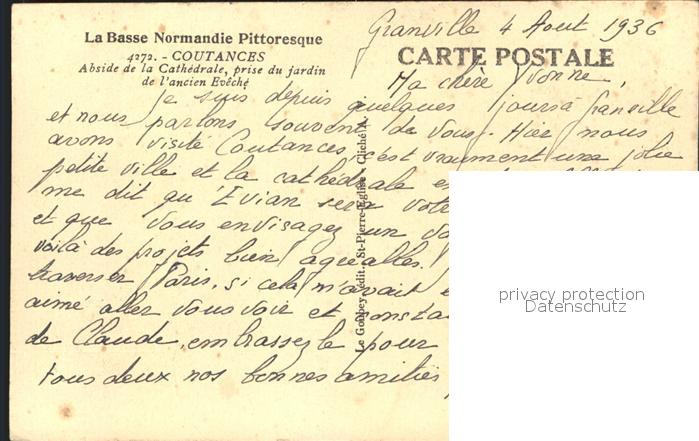 La Basse Normandie Pittoresque
4272. - COUTANCES
Abside de la Cathédrale, prise du jardin
de l'ancien Evêché
Granville 4 Aout 1936
CARTE POSTALE
Ma chère Yvonne,
Je suis depuis quelques jours à Granville
et nous parlons souvent de vous. Hier nous
avons visité Coutances, c'est vraiment une jolie
petite ville et la cathédrale
me dit qu'Evian sera votre
et que vous envisagez un
voilà des projets bien agréables.
traverser Paris, si cela m'avait
aimé aller vous voir et
de Claude, embrassez le pour
tous deux nos bonnes amitiés
Le Goubey, édit. St-Pierre-Eglise - Cliché A.
privacy protection
Datenschutz